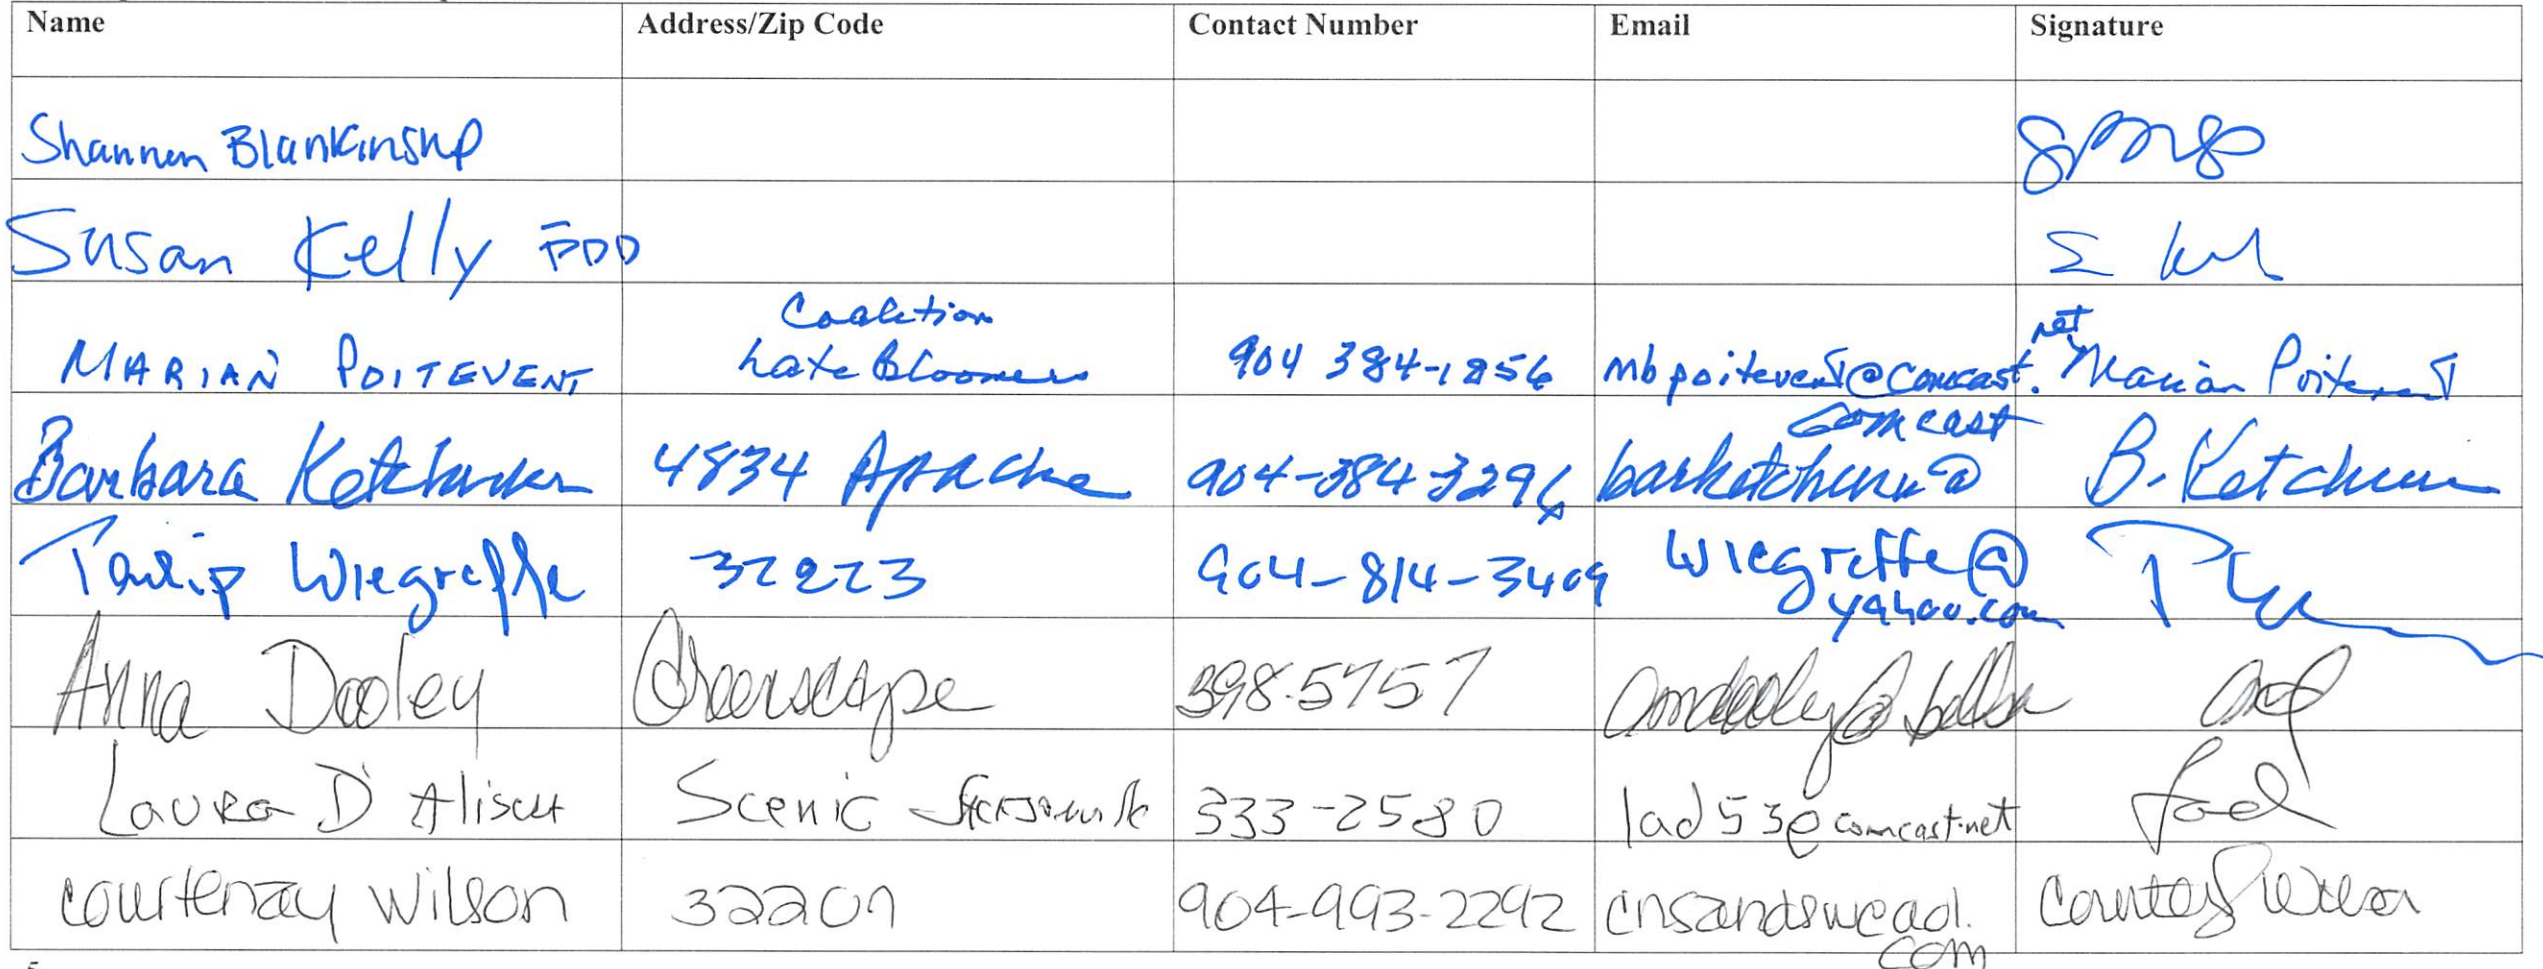 Name Address/Zip Code Contact Number Email Signature
Shannon Blankinship
Susan Kelly PDD
Coalition
MARIAN POITEVENT Late Bloomers 904 384-1856 mbpoitevent@comcast.net Marian Poitevent
comcast
Barbara Ketchum 4834 Apache 904-384-3296 barketchum@ B. Ketchum
Wiegreffe 32223 904-814-3409 wiegreffe@
yahoo.com
Anna Dooley Greenscape 398-5757
Laura D'Alisera Scenic Jacksonville 333-2580 lad53@comcast.net
courtenay wilson 32207 904-993-2292 cnsandsw@aol.
com
5